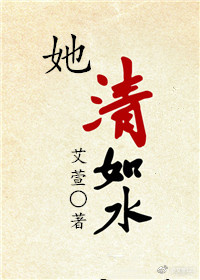 她
清如水
艾萱○著